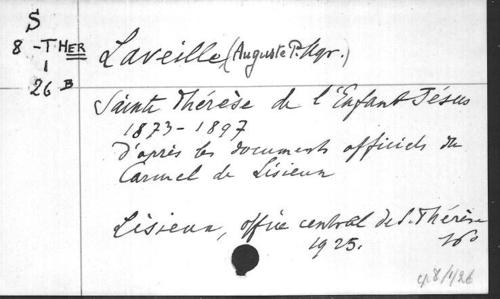 S
8 - THER
1
26 B
Laveille (Auguste P. Mgr.)
Sainte Thérèse de l'Enfant Jésus
1873-1897
d'après les documents officiels du
Carmel de Lisieux
Lisieux, office central de S. Thérèse
1925. 16º
8/1/26